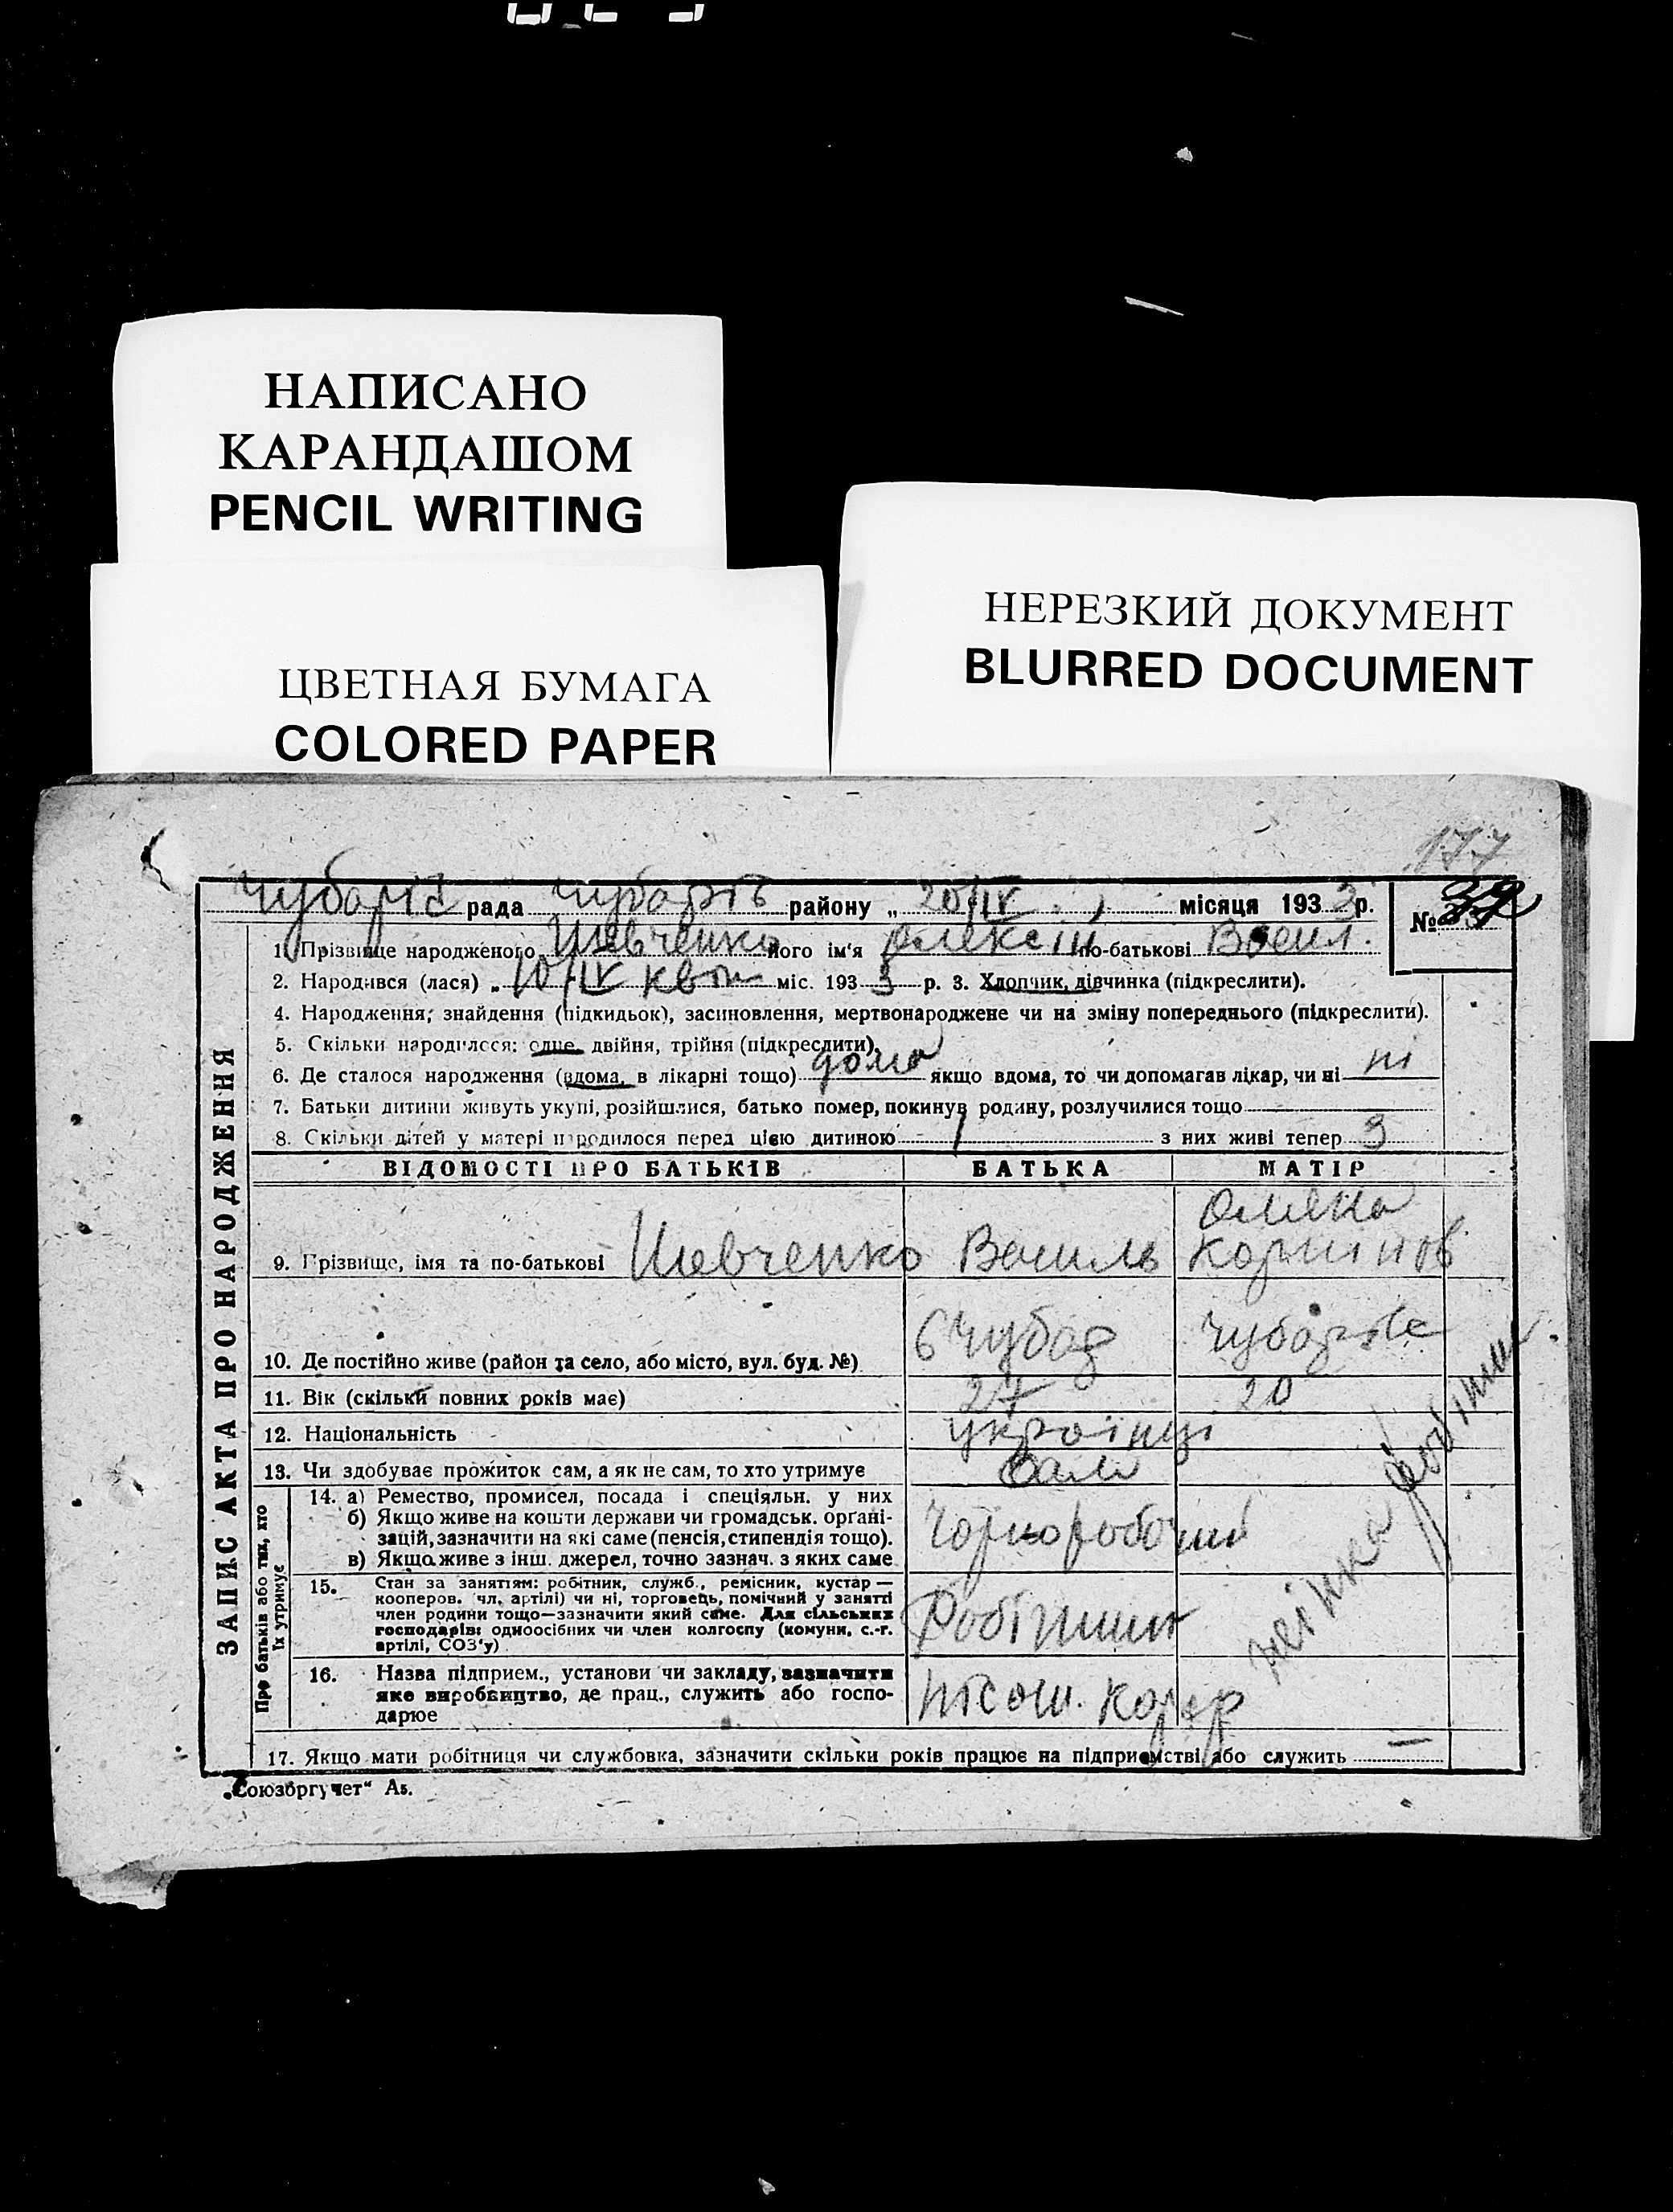 НАПИСАНО
КАРАНДАШОМ
PENCIL WRITING
ЦВЕТНАЯ БУМАГА
COLORED PAPER
НЕРЕЗКИЙ ДОКУМЕНТ
BLURRED DOCUMENT
177
рада района „ 20/IV місяця 1933 р. №
1. Прізвище народженого Шевченко його ім'я Олексій по-батькові Васил.
2. Народився (лася) „ 10/IV квіт міс. 193 3 р. 3. Хлопчик, дівчинка (підкреслити).
4. Народження, знайдення (підкидьок), засиновлення, мертвонароджене чи на зміну попереднього (підкреслити).
5. Скільки народилося: одне, двійня, трійня (підкреслити).
6. Де сталося народження (вдома, в лікарні тощо) дома якщо вдома, то чи допомагав лікар, чи ні ні
7. Батьки дитини живуть укупі, розійшлися, батько помер, покинув родину, розлучилися тощо
8. Скільки дітей у матері народилося перед цією дитиною 1 з них живі тепер
ВІДОМОСТІ ПРО БАТЬКІВ БАТЬКА МАТІР
9. Прізвище, імя та по-батькові Шевченко Василь
10. Де постійно живе (район та село, або місто, вул. буд. №)
11. Вік (скільки повних років має) 27 20
12. Національність українці
13. Чи здобуває прожиток сам, а як не сам, то хто утримує сам
ЗАПИС АКТА ПРО НАРОДЖЕННЯ
Про батьків або тих, хто їх утримує
14. а) Ремество, промисел, посада і спеціяльн. у них
б) Якщо живе на кошти держави чи громадськ. органі-
зацій, зазначити на які саме (пенсія, стипендія тощо).
в) Якщо живе з інш. джерел, точно зазнач. з яких саме
Чорноробочий
15. Стан за заняттям: робітник, служб., ремісник, кустар —
кооперов. чл. артілі) чи ні, торговець, помічний у занятті
член родини тощо—зазначити який саме. Для сільських
господарів: одноосібних чи член колгоспу (комуни, с.-г.
артілі, СОЗ'у)
Робітник
16. Назва підприєм., установи чи закладу, зазначити
яке виробництво, де прац., служить або госпо-
дарює
17. Якщо мати робітниця чи службовка, зазначити скільки років працює на підприємстві або служить —
„Союзоргучет“ Аз.